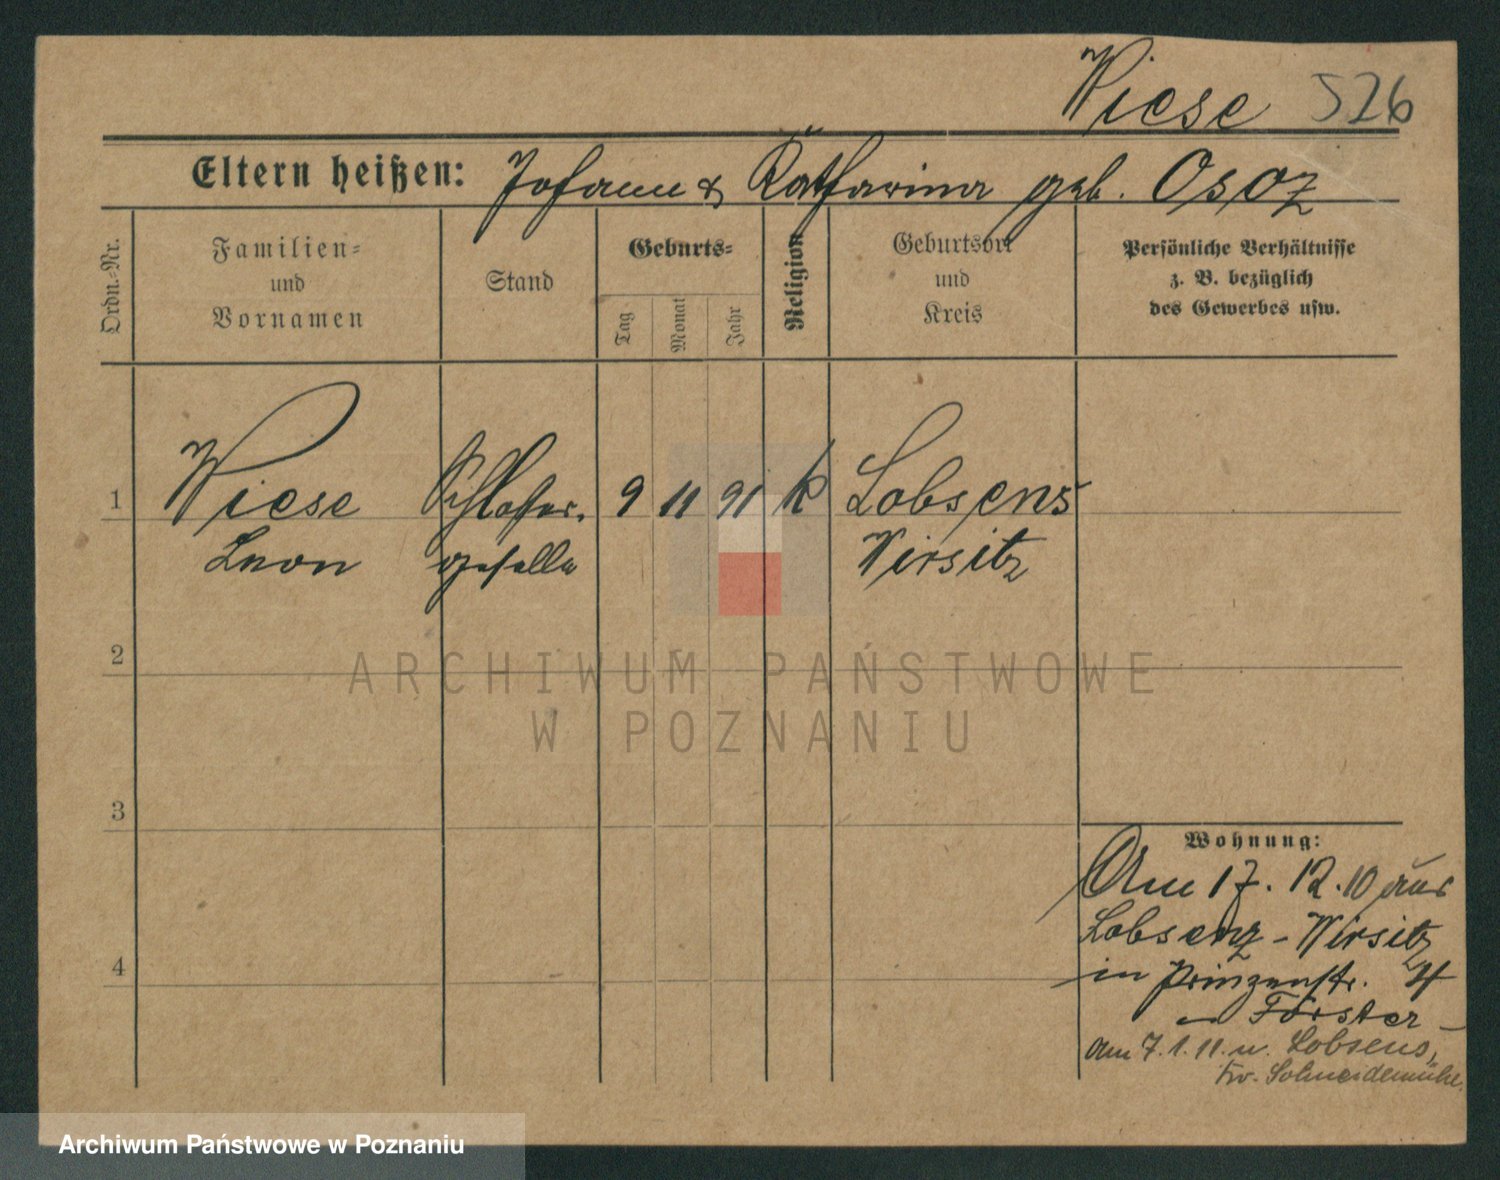 Wiese 526
Eltern heißen: Johann & Katharina geb. Osoz
Ordn.-Nr.
Familien-
und
Vornamen
Stand
Geburts-
Tag
Monat
Jahr
Religion
Geburtsort
und
Kreis
Persönliche Verhältnisse
z. B. bezüglich
des Gewerbes usw.
1 Wiese Schlosser- 9 11 91 k Lobsens
Leon geselle Wirsitz
2
3
4
Wohnung:
Am 17. 12. 10 aus
Lobsenz - Wirsitz
in Prinzenstr. 4
Förster -
Am 7. 1. 11. n. Lobsens,
Kr. Schneidemühl.
ARCHIWUM PAŃSTWOWE
W POZNANIU
Archiwum Państwowe w Poznaniu